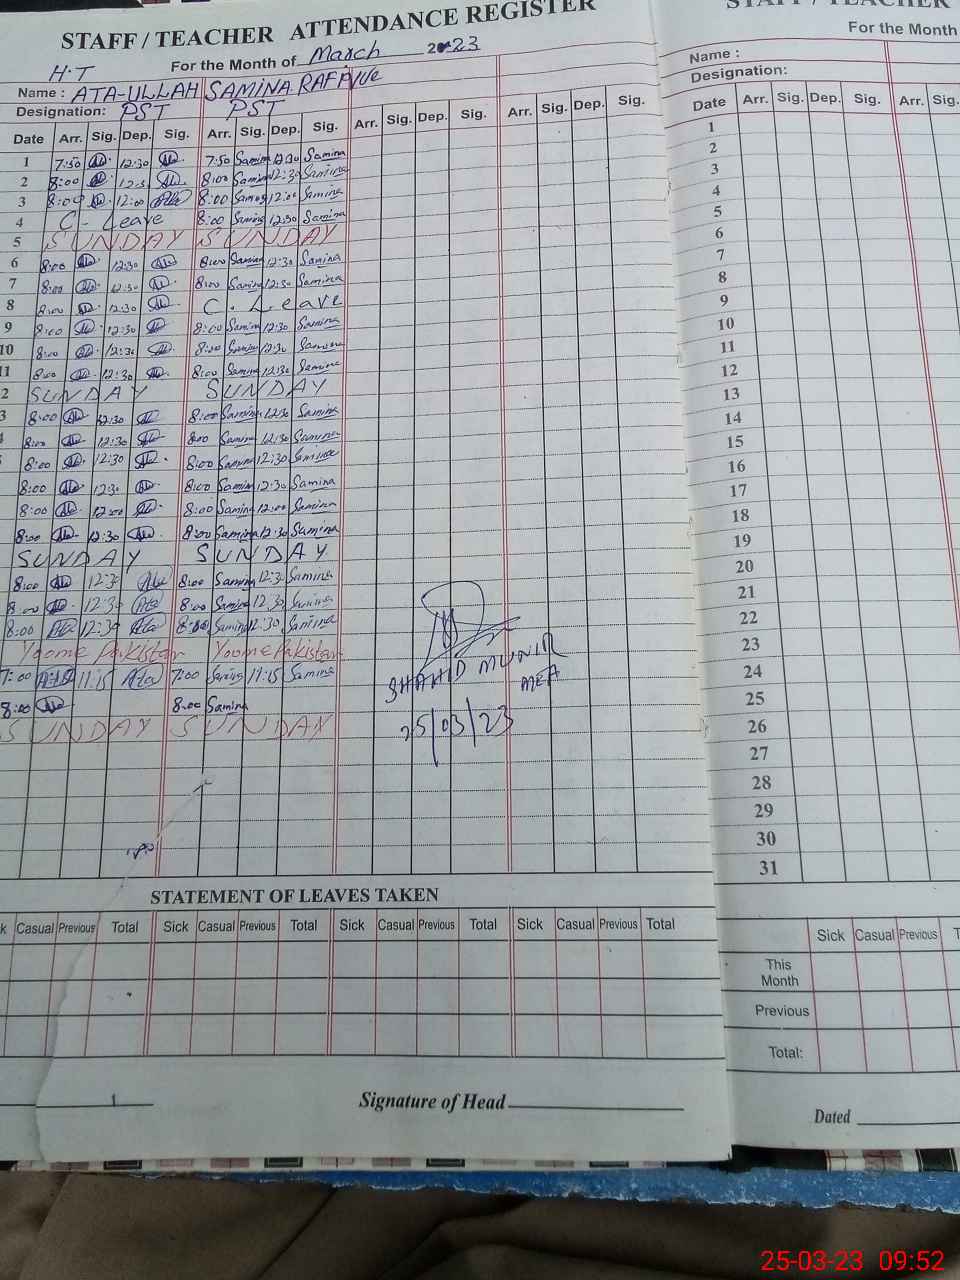 STAFF / TEACHER ATTENDANCE REGISTER
For the Month of March 2023
H.T
Name : ATA-ULLAH SAMINA RAFFIUE
Designation: PST PST
Date Arr. Sig. Dep. Sig. Arr. Sig. Dep. Sig. Arr. Sig. Dep. Sig. Arr. Sig. Dep. Sig.
1 7:50 12:30 7:50 Samina 12:30 Samina
2 8:00 12:30 8:00 Samina 12:30 Samina
3 8:00 12:00 Ata 8:00 Samina 12:00 Samina
4 C - Leave 8:00 Samina 12:30 Samina
5 SUNDAY SUNDAY
6 8:00 12:30 8:00 Samina 12:30 Samina
7 8:00 12:30 8:00 Samina 12:30 Samina
8 8:00 12:30 C. Leave
9 8:00 12:30 8:00 Samina 12:30 Samina
10 8:00 12:30 8:00 Samina 12:30 Samina
11 8:00 12:30 8:00 Samina 12:30 Samina
2 SUNDAY SUNDAY
3 8:00 12:30 8:00 Samina 12:30 Samina
8:00 12:30 8:00 Samina 12:30 Samina
8:00 12:30 8:00 Samina 12:30 Samina
8:00 12:30 8:00 Samina 12:30 Samina
8:00 12:00 8:00 Samina 12:00 Samina
8:00 12:30 8:00 Samina 12:30 Samina
SUNDAY SUNDAY
8:00 12:30 8:00 Samina 12:30 Samina
8:00 12:30 Ata 8:00 Samina 12:30 Samina
8:00 Ata 12:30 Ata 8:00 Samina 12:30 Samina
Yoome Pakistan Yoome Pakistan
7:00 11:15 Ata 7:00 Samina 11:15 Samina
8:00 8:00 Samina
SUNDAY SUNDAY
SHAHID MUNIR
MEA
25/03/23
STATEMENT OF LEAVES TAKEN
k Casual Previous Total Sick Casual Previous Total Sick Casual Previous Total Sick Casual Previous Total
Signature of Head
For the Month
Name :
Designation:
Date Arr. Sig. Dep. Sig. Arr. Sig.
1
2
3
4
5
6
7
8
9
10
11
12
13
14
15
16
17
18
19
20
21
22
23
24
25
26
27
28
29
30
31
Sick Casual Previous T
This
Month
Previous
Total:
Dated
25-03-23 09:52